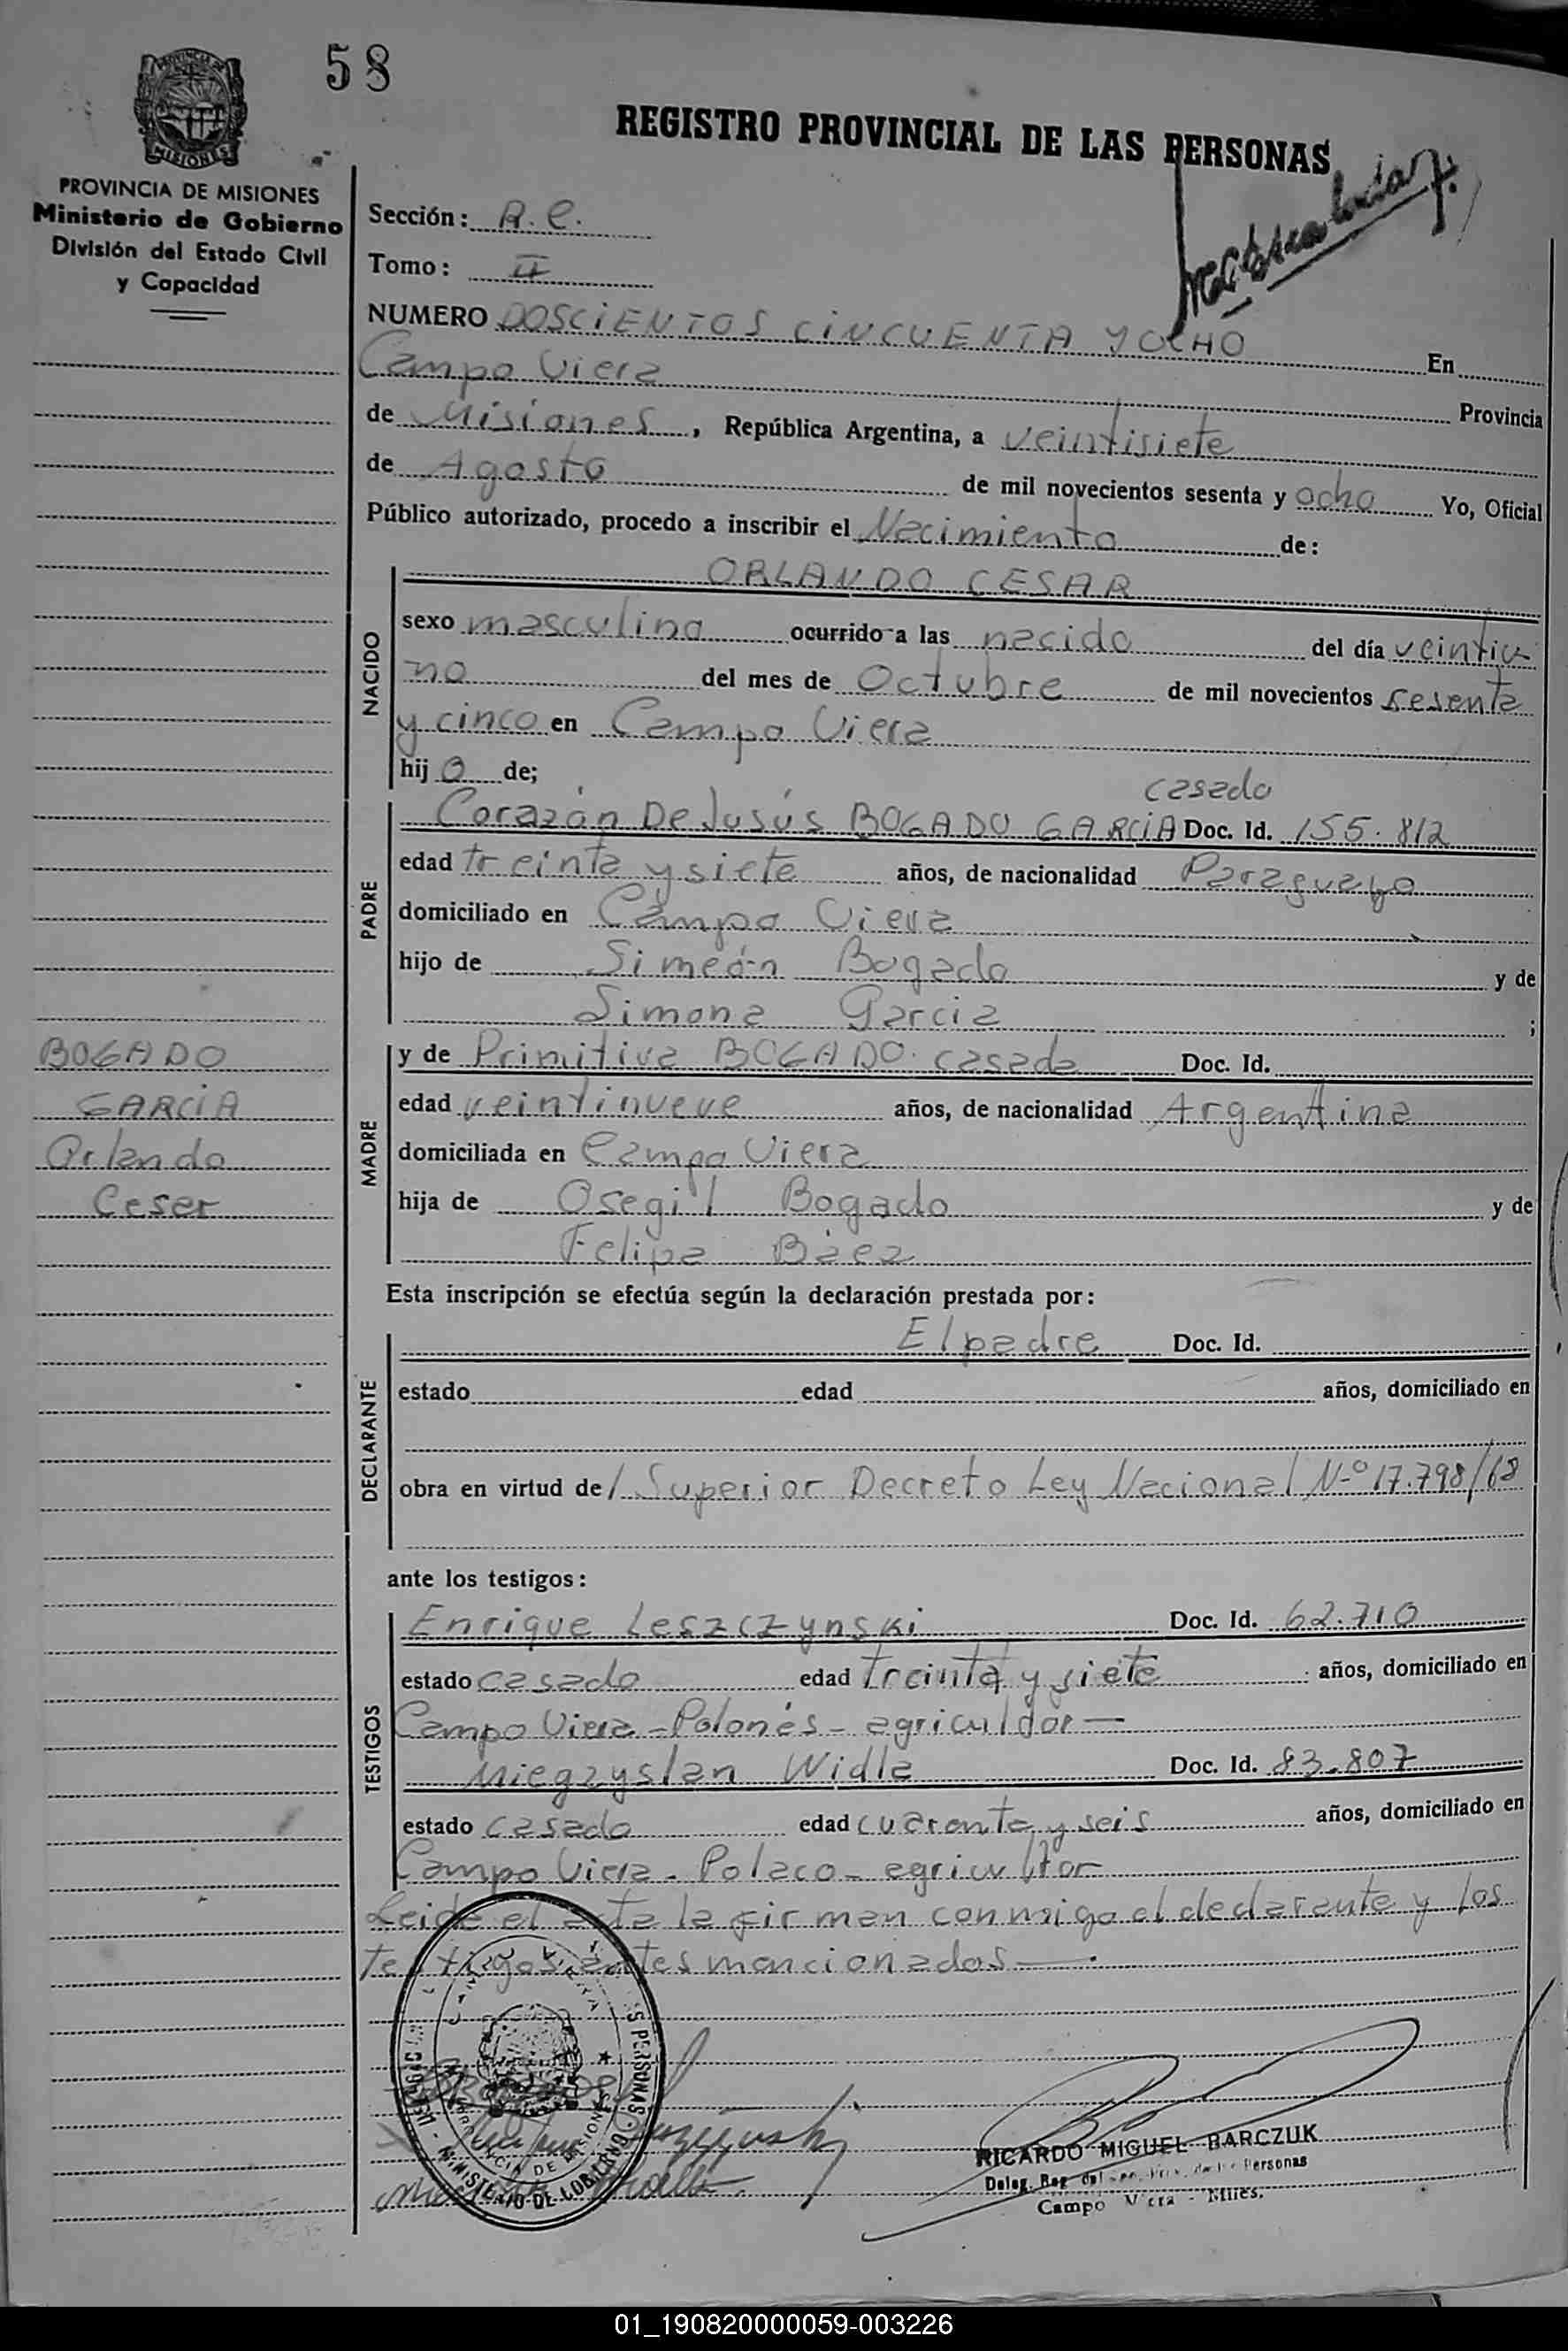 58
REGISTRO PROVINCIAL DE LAS PERSONAS
MISIONES
PROVINCIA DE MISIONES
Ministerio de Gobierno
División del Estado Civil
y Capacidad
Sección: R. C.
Tomo: II
NUMERO DOSCIENTOS CINCUENTA Y OCHO En
Campo Viera Provincia
de Misiones, República Argentina, a veintisiete
de Agosto de mil novecientos sesenta y ocho Yo, Oficial
Público autorizado, procedo a inscribir el Nacimiento de:
ORLANDO CESAR
NACIDO
sexo masculino ocurrido a las nacido del día veintiu
no del mes de Octubre de mil novecientos sesenta
y cinco en Campo Viera
hijo de;
casado
PADRE
Corazón De Jusús BOGADO GARCIA Doc. Id. 155.812
edad treinta y siete años, de nacionalidad Paraguayo
domiciliado en Campo Viera
hijo de Simeón Bogado y de
Simona Garcia ;
BOGADO
GARCIA
Orlando
Cesar
MADRE
y de Primitiva BOGADO. casada Doc. Id.
edad veintinueve años, de nacionalidad Argentina
domiciliada en Campo Viera
hija de Osegil Bogado y de
Felipa Báez
Esta inscripción se efectúa según la declaración prestada por:
DECLARANTE
El padre Doc. Id.
estado edad años, domiciliado en
obra en virtud de/ Superior Decreto Ley Nacional N-º 17.798/68
ante los testigos:
TESTIGOS
Enrique Leszczynski Doc. Id. 62.710
estado casado edad treinta y siete años, domiciliado en
Campo Viera - Polonés - agricultor —
Miegzyslan Widla Doc. Id. 83.807
estado casado edad cuarenta y seis años, domiciliado en
Campo Viera - Polaco - agricultor
Leida el acta la firman conmigo el declarante y los
testigos antes mencionados —.
RICARDO MIGUEL BARCZUK
Deleg. Reg. Personas
Campo Viera - Mnes.
01_190820000059-003226